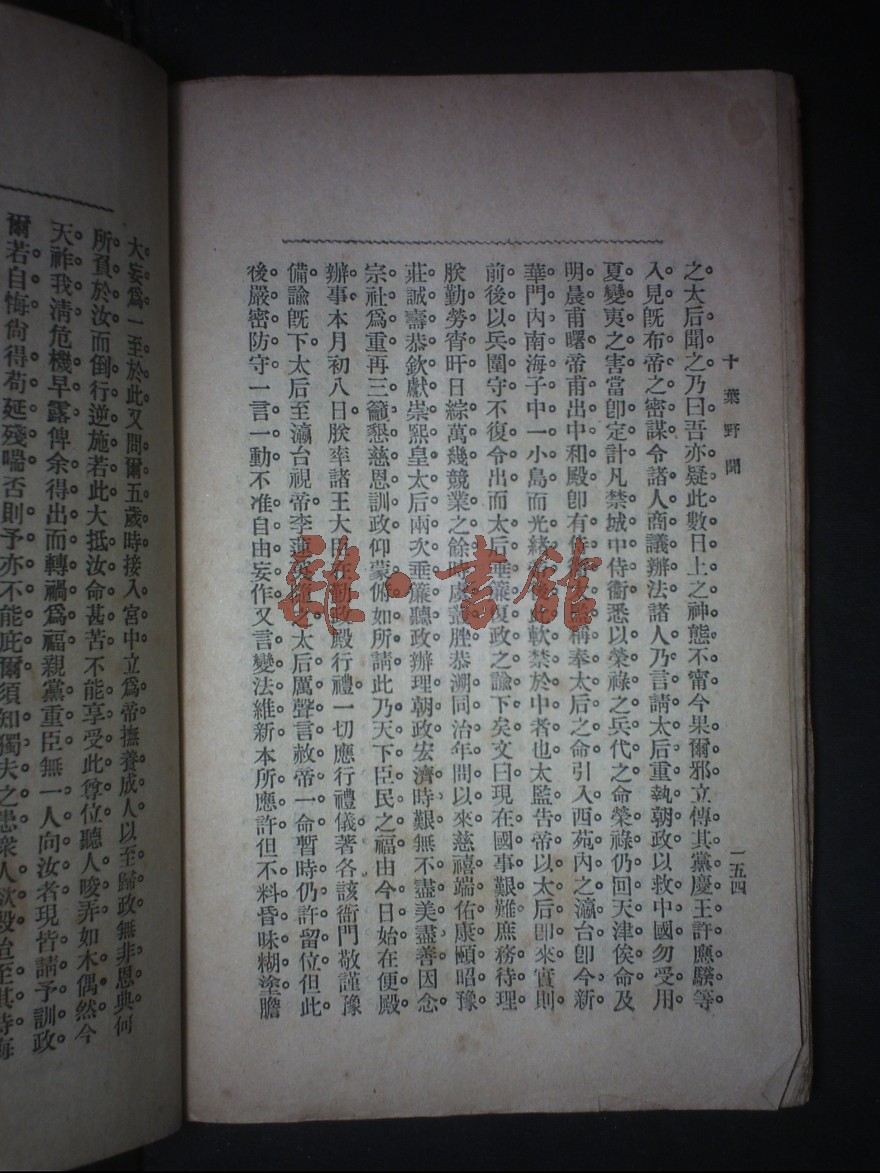 十葉野聞
一五四
之太后聞之乃曰吾亦疑此數日上之神態不甯今果爾邪立傳其黨慶王許應騤等
入見旣布帝之密謀令諸人商議辦法諸人乃言請太后重執朝政以救中國勿受用
夏變夷之害當卽定計凡禁城中侍衞悉以榮祿之兵代之命榮祿仍回天津俟命及
明晨甫曙帝甫出中和殿卽有侍衞太監稱奉太后之命引入西苑內之瀛台卽今新
華門內南海子中一小島而光緒帝後此軟禁於中者也太監告帝以太后卽來實則
前後以兵圍守不復令出而太后垂簾復政之諭下矣文曰現在國事艱難庶務待理
朕勤勞宵旰日綜萬幾競業之餘時虞叢脞恭溯同治年間以來慈禧端佑康頤昭豫
莊誠壽恭欽獻崇熙皇太后兩次垂簾聽政辦理朝政宏濟時艱無不盡美盡善因念
宗社爲重再三籲懇慈恩訓政仰蒙俯如所請此乃天下臣民之福由今日始在便殿
辦事本月初八日朕率諸王大臣在勤政殿行禮一切應行禮儀著各該衙門敬謹豫
備諭旣下太后至瀛台視帝李蓮英隨之太后厲聲言赦帝一命暫時仍許留位但此
後嚴密防守一言一動不准自由妄作又言變法維新本所應許但不料昏昧糊塗膽
大妄爲一至於此又問爾五歲時接入宮中立爲帝撫養成人以至歸政無非恩典何
所負於汝而倒行逆施若此大抵汝命甚苦不能享受此尊位聽人唆弄如木偶然今
天祚我淸危機早露俾余得出而轉禍爲福親黨重臣無一人向汝者現皆請予訓政
爾若自悔尙得苟延殘喘否則予亦不能庇爾須知獨夫之患衆人欲殺豈至其時悔
雜·書館